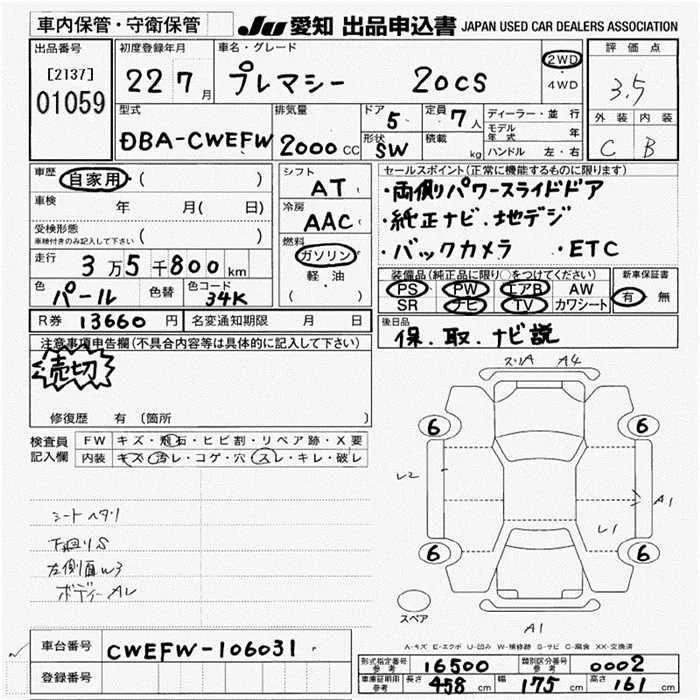 車内保管・守衛保管
JU 愛知 出品申込書 JAPAN USED CAR DEALERS ASSOCIATION
出品番号
[2137]
01059
初度登録年月
22 7 月
車名・グレード
プレマシー 20CS
2WD
・
4WD
評価点
3.5
外装 内装
C B
型式
DBA-CWEFW
排気量
2000 CC
ドア 5
形状 SW
定員 7 人
積載 kg
ディーラー・並行
モデル年式 年
ハンドル 左・右
車歴 自家用 ( )
車検 年 月( 日)
受検形態
車検付きのみ記入して下さい ( )
走行 3万5千800km
色 パール 色替 色コード 34K
シフト
AT
冷房
AAC
燃料
ガソリン
軽・油
( )
セールスポイント(正常に機能するものに限ります)
・両側パワースライドドア
・純正ナビ・地デジ
・バックカメラ ・ETC
装備品(純正品に限り○をつけてください)
PS PW エアB AW
SR ナビ TV カワシート
新車保証書
有 無
R券 13660 円 名変通知期限 月 日
後日品
保．取．ナビ説
注意事項申告欄(不具合内容等は具体的に記入して下さい)
売切
修復歴 有 (箇所
検査員
記入欄
FW キズ・飛石・ヒビ割・リペア跡・X要
内装 キズ・汚レ・コゲ・穴・スレ・キレ・破レ
シートヘタリ
下回りS
左側面W3
ボディーAレ
スリA A4
6 6
レ2
A1
レ1
6 6
スペア
A1
A-キズ E-エクボ U-凹み W-補修跡 S-サビ C-腐食 XX-交換済
車台番号 CWEFW-106031
登録番号
型式指定番号
参考 16500
類別区分番号
参考 0002
車庫証明用
参考 長さ 458 cm 幅 175 cm 高さ 161 cm